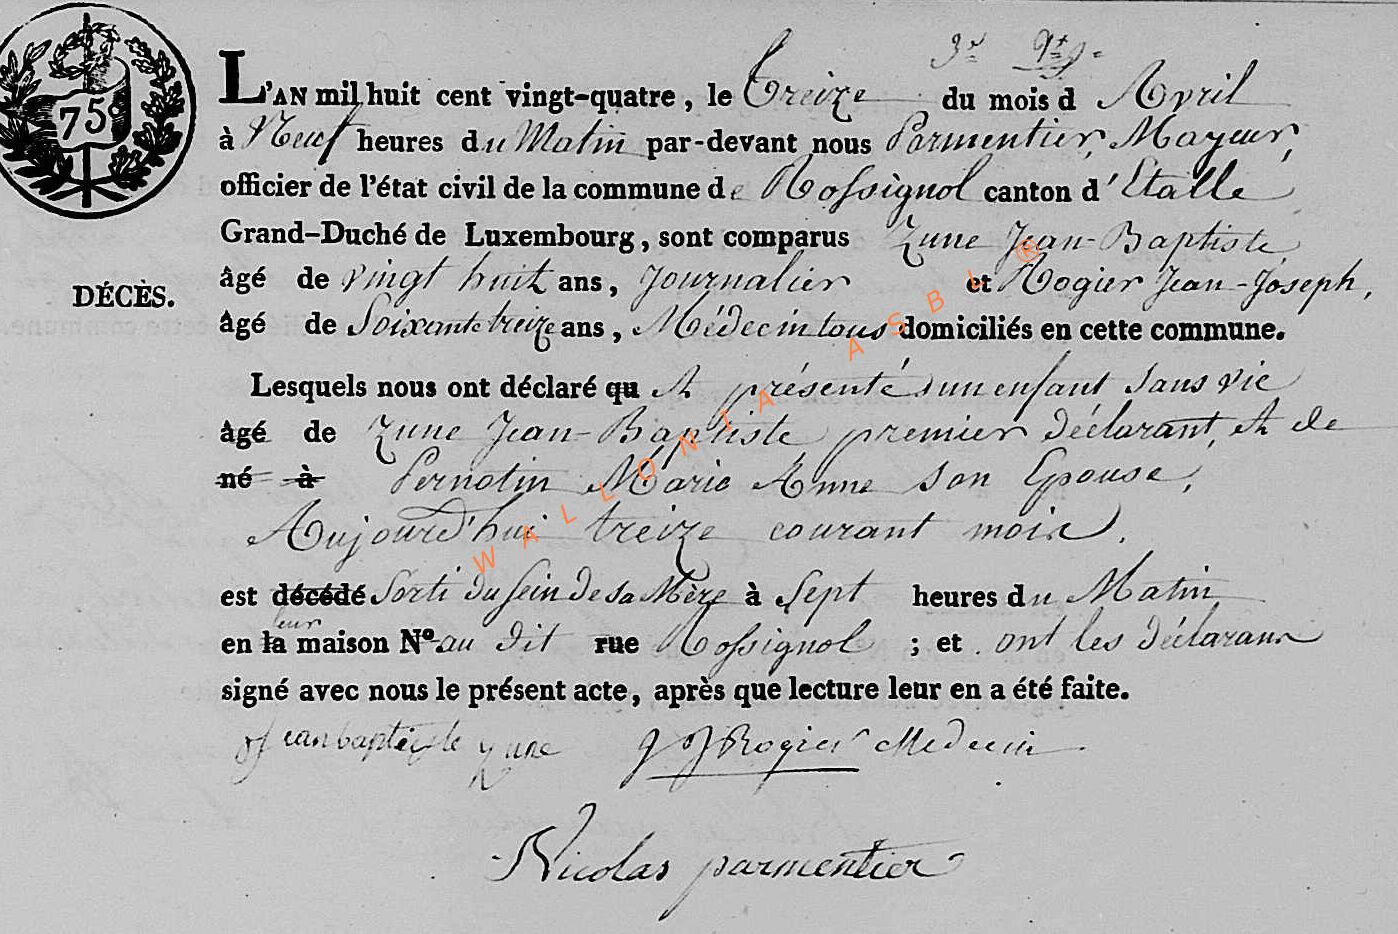 3e 9bre
75
L'AN mil huit cent vingt-quatre, le Treize du mois d Avril
à Neuf heures du Matin par-devant nous Parmentier, Mayeur,
officier de l'état civil de la commune de Rossignol canton d'Etalle
Grand-Duché de Luxembourg, sont comparus Zune Jean-Baptiste
âgé de vingt huit ans, Journalier et Rogier Jean-Joseph,
DÉCÈS.
âgé de Soixante treize ans, Médecin tous domiciliés en cette commune.
Lesquels nous ont déclaré qu et présenté un enfant Sans vie
âgé de Zune Jean-Baptiste premier déclarant, et de
né à Pernotin Marie Anne son Epouse,
Aujourd'hui treize courant mois.
est décédé Sorti du Sein de sa Mère à Sept heures du Matin
leur
en la maison No au dit rue Rossignol ; et ont les déclarans
signé avec nous le présent acte, après que lecture leur en a été faite.
Jean baptiste zune J J Rogier Medecin
Nicolas parmentier
WALLONIA ASBL ®